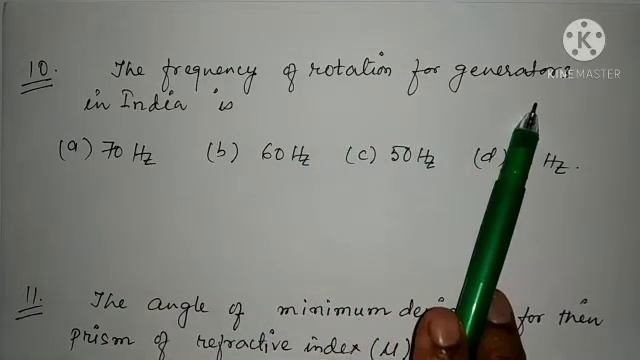 KINEMASTER
10. The frequency of rotation for generators
in India is
(a) 70 Hz (b) 60 Hz (c) 50 Hz (d) Hz.
11. The angle of minimum for then
prism of refractive index (μ)